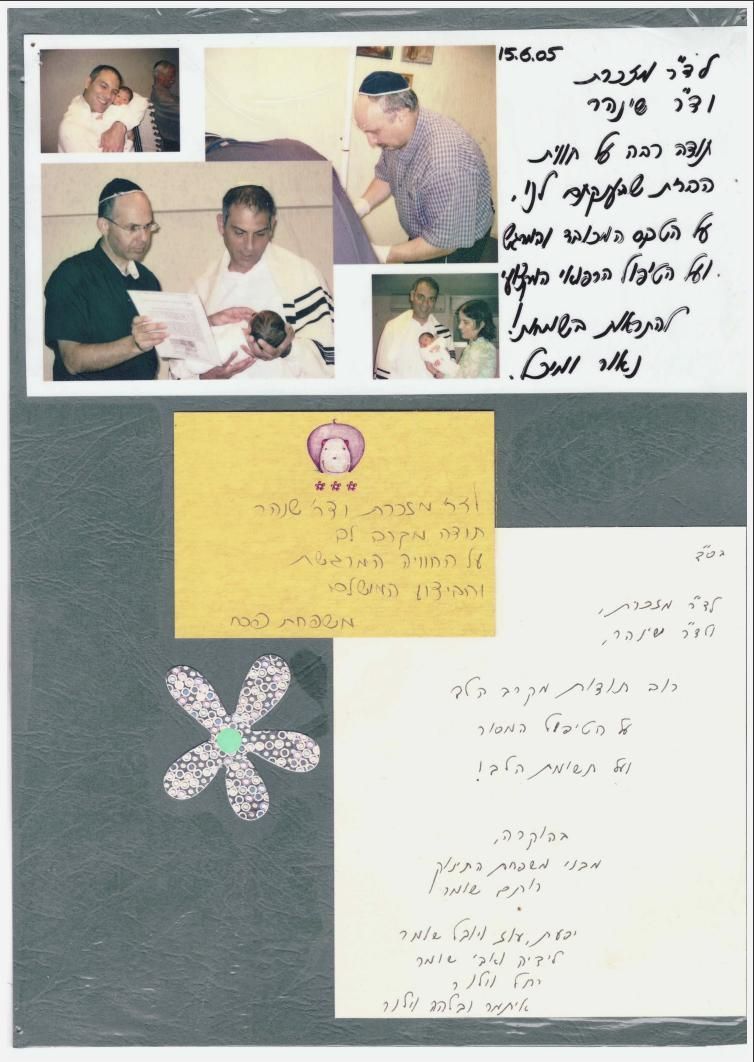 15.6.05
לד"ר מזכרת
וד"ר שינהר
תודה רבה על חווית
הברית שהענקתם לנו.
על הטקס המכובד והמרגש
ועל הטיפול הרפואי המקצועי.
להתראות בשמחות!
נאור ומיכל.
לדר' מזכרת ודר' שנהר
תודה מקרב לב
על החוויה המרגשת
והביצוע המושלם.
משפחת
בס"ד
לד"ר מזכרת,
ולד"ר שינהר,
רוב תודות מקרב הלב
על הטיפול המסור
ועל תשומת הלב!
בהוקרה,
מבני משפחת התינוק
רותם שומר
יפעת, עוז ויובל שומר
לידיה ואבי שומר
רחל וילנר
איתמר ובלהה וילנר